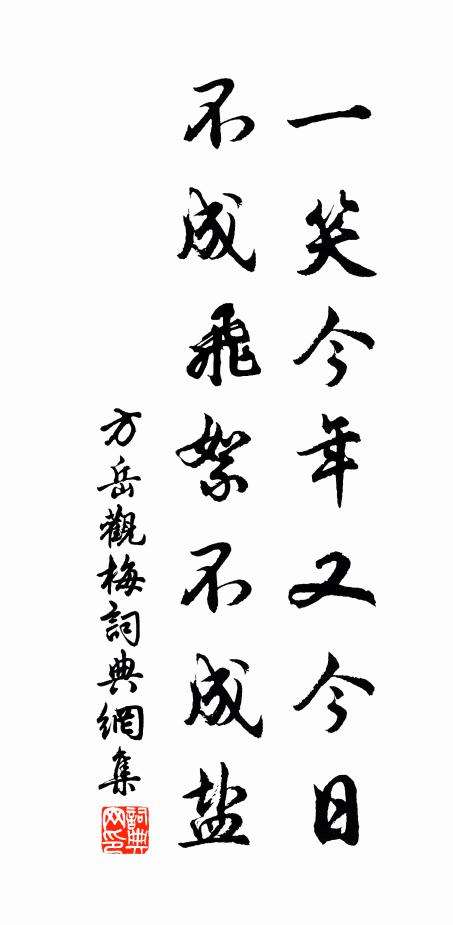 一笑今年又今日
不成飛絮不成盐
方岳觀梅詞典網集
詞典網印